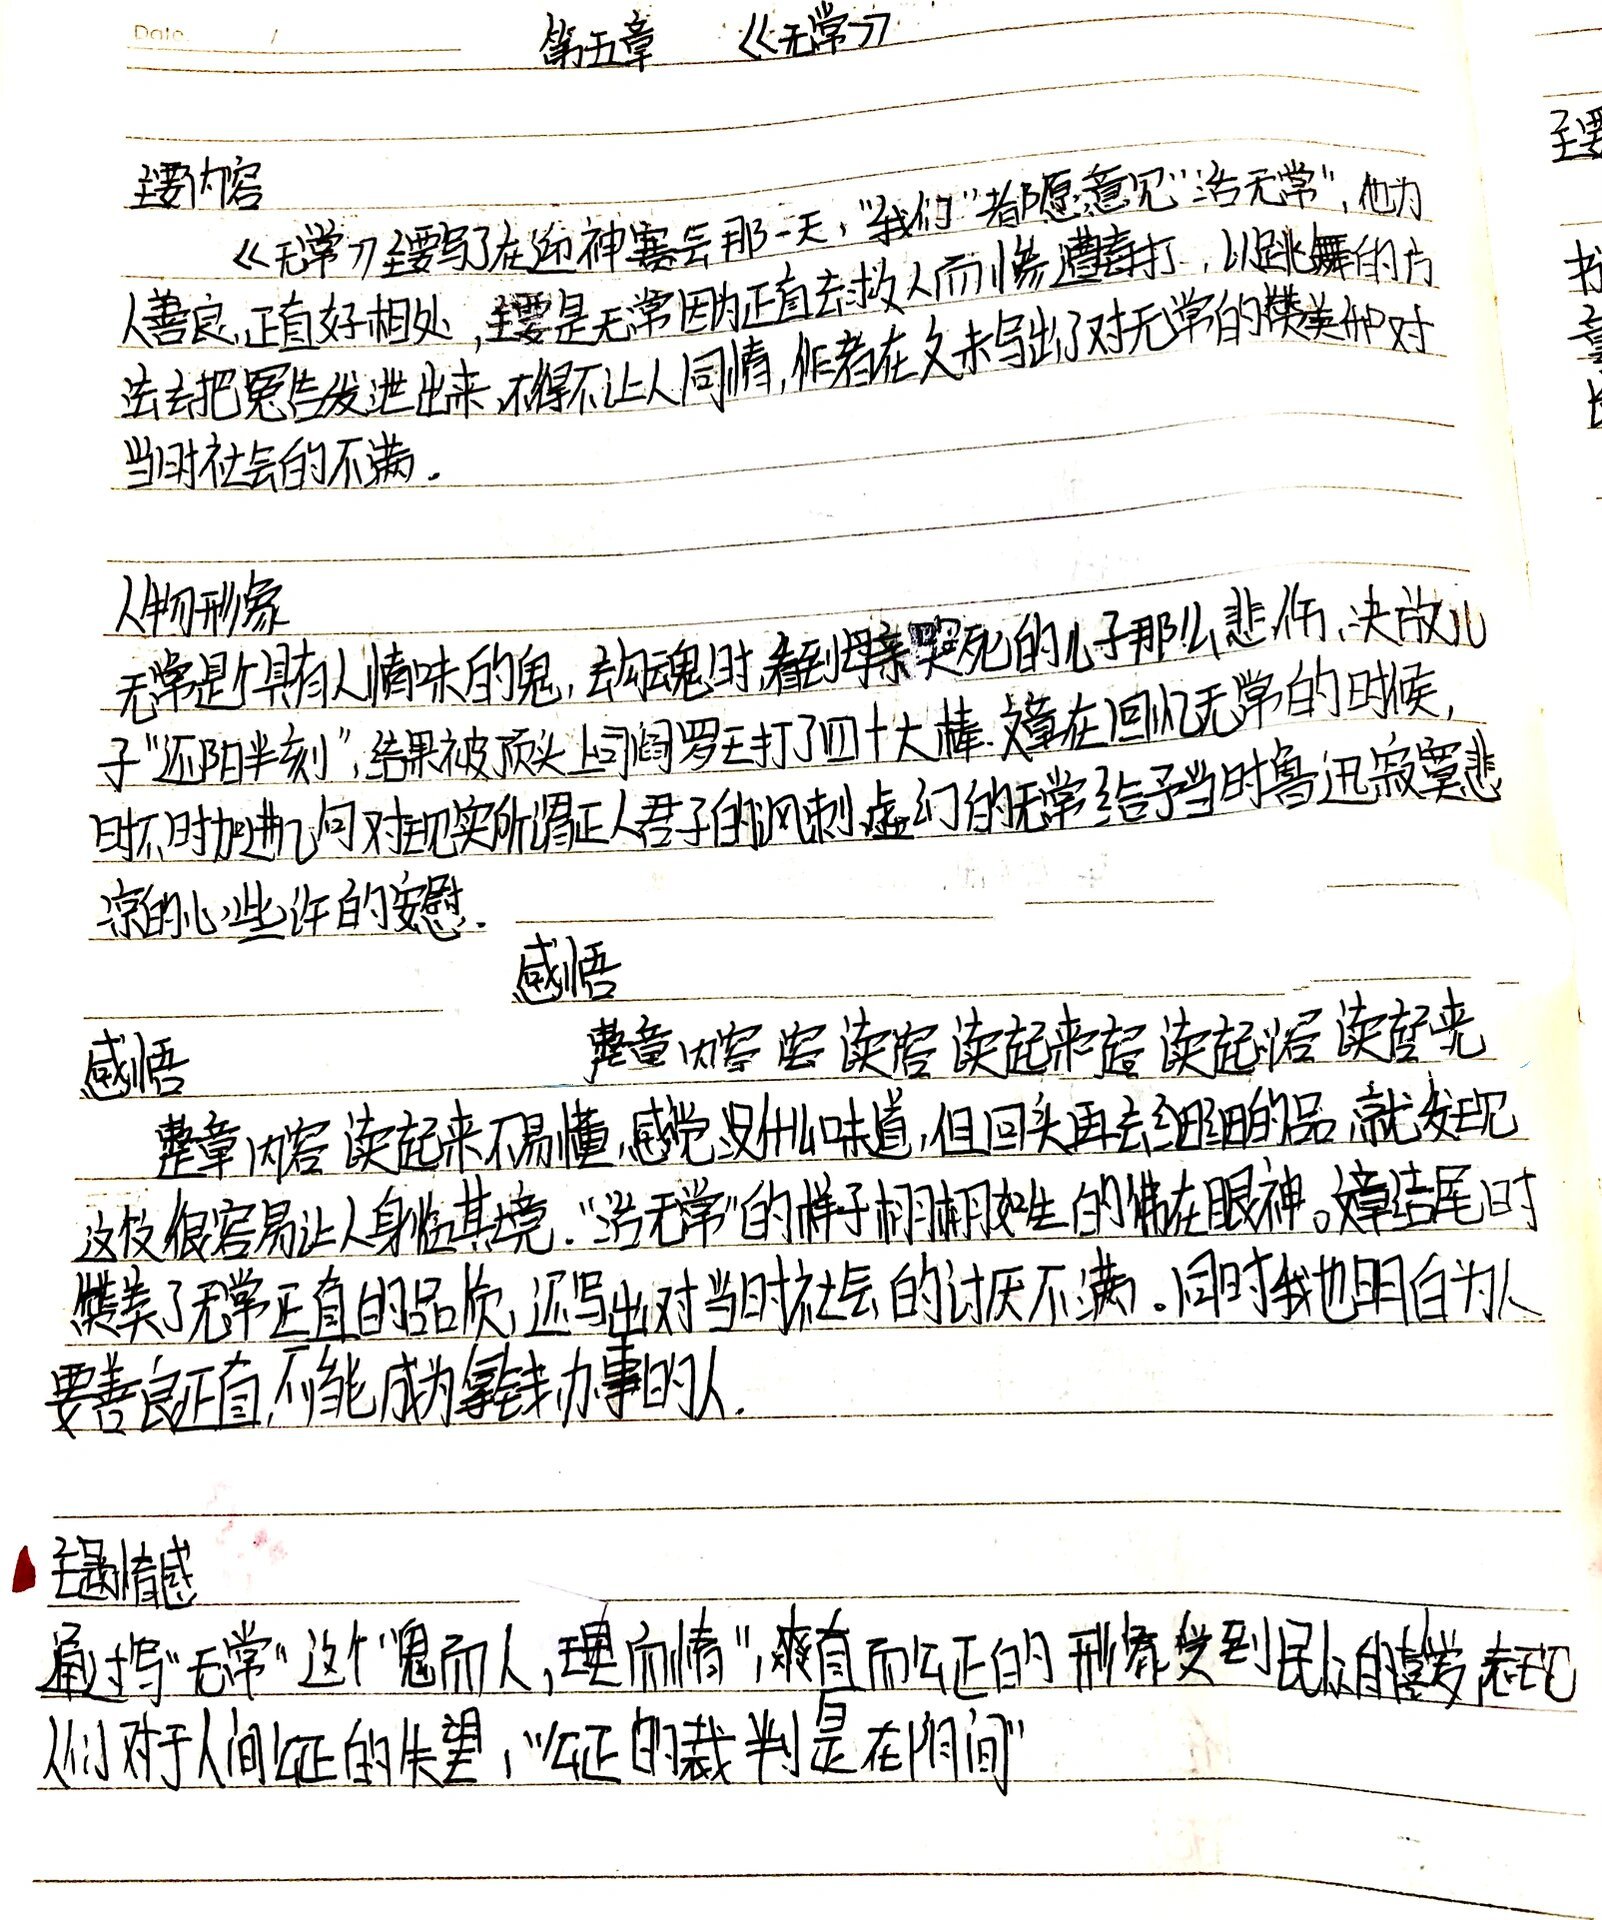 Date: /
第五章 《无常》
主要内容
《无常》主要写了在迎神赛会那一天，"我们"都愿意见"活无常"，他为
人善良、正直好相处，主要是无常因为正直去救人而惨遭毒打，以跳舞的方
法去把冤告发泄出来，不得不让人同情，作者在文末写出了对无常的赞美和对
当时社会的不满.
人物形象
无常是个具有人情味的鬼，去勾魂时，看到母亲哭死的儿子那么悲伤，决放儿
子"还阳半刻"，结果被顶头上司阎罗王打了四十大棒.文章在回忆无常的时候，
时不时加进几句对现实所谓正人君子的讽刺，虚幻的无常给予当时鲁迅寂寞悲
凉的心些许的安慰.
感悟
整章内容 容 读容 读起来起 读起容 读
感悟
整章内容读起来不易懂，感觉没什么味道，但回头再去细细的品，就发现
这仅很容易让人身临其境."活无常"的样子栩栩如生的佛在眼神。文章结尾时
赞美了无常正直的品质，还写出对当时社会的讨厌不满。同时我也明白为人
要善良正直，不能成为拿钱办事的人.
主题情感
通过写"无常"这个"鬼而人，理而情"，爽直而公正的形象受到民众的喜爱，表现
人们对于人间公正的失望，"公正的裁判是在阴间"
主要
书
章